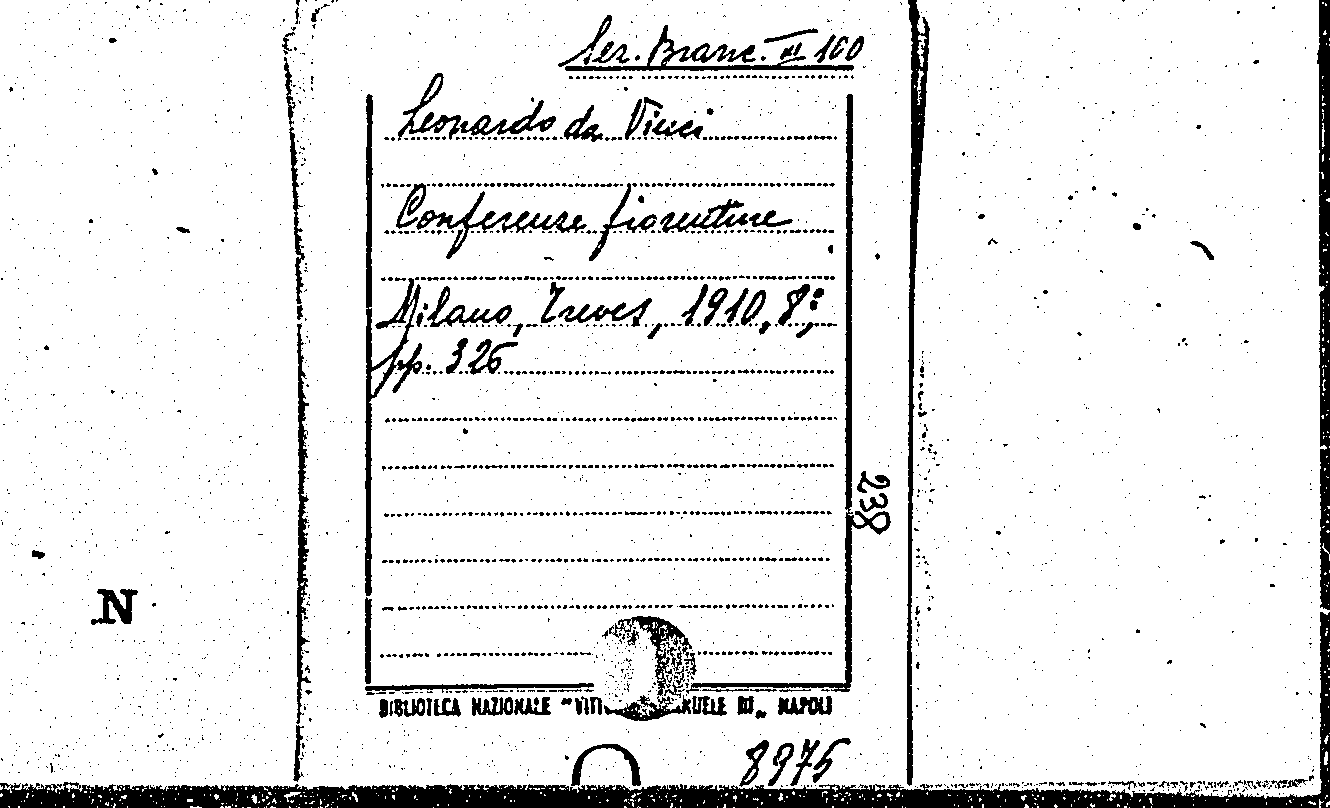 Ser. Branc. III 100
Leonardo da Vinci
Conferenze fiorentine
Milano, Treves, 1910, 8º,
pp. 326
238
N
BIBLIOTECA NAZIONALE "VITT NUELE III„ NAPOLI
8975